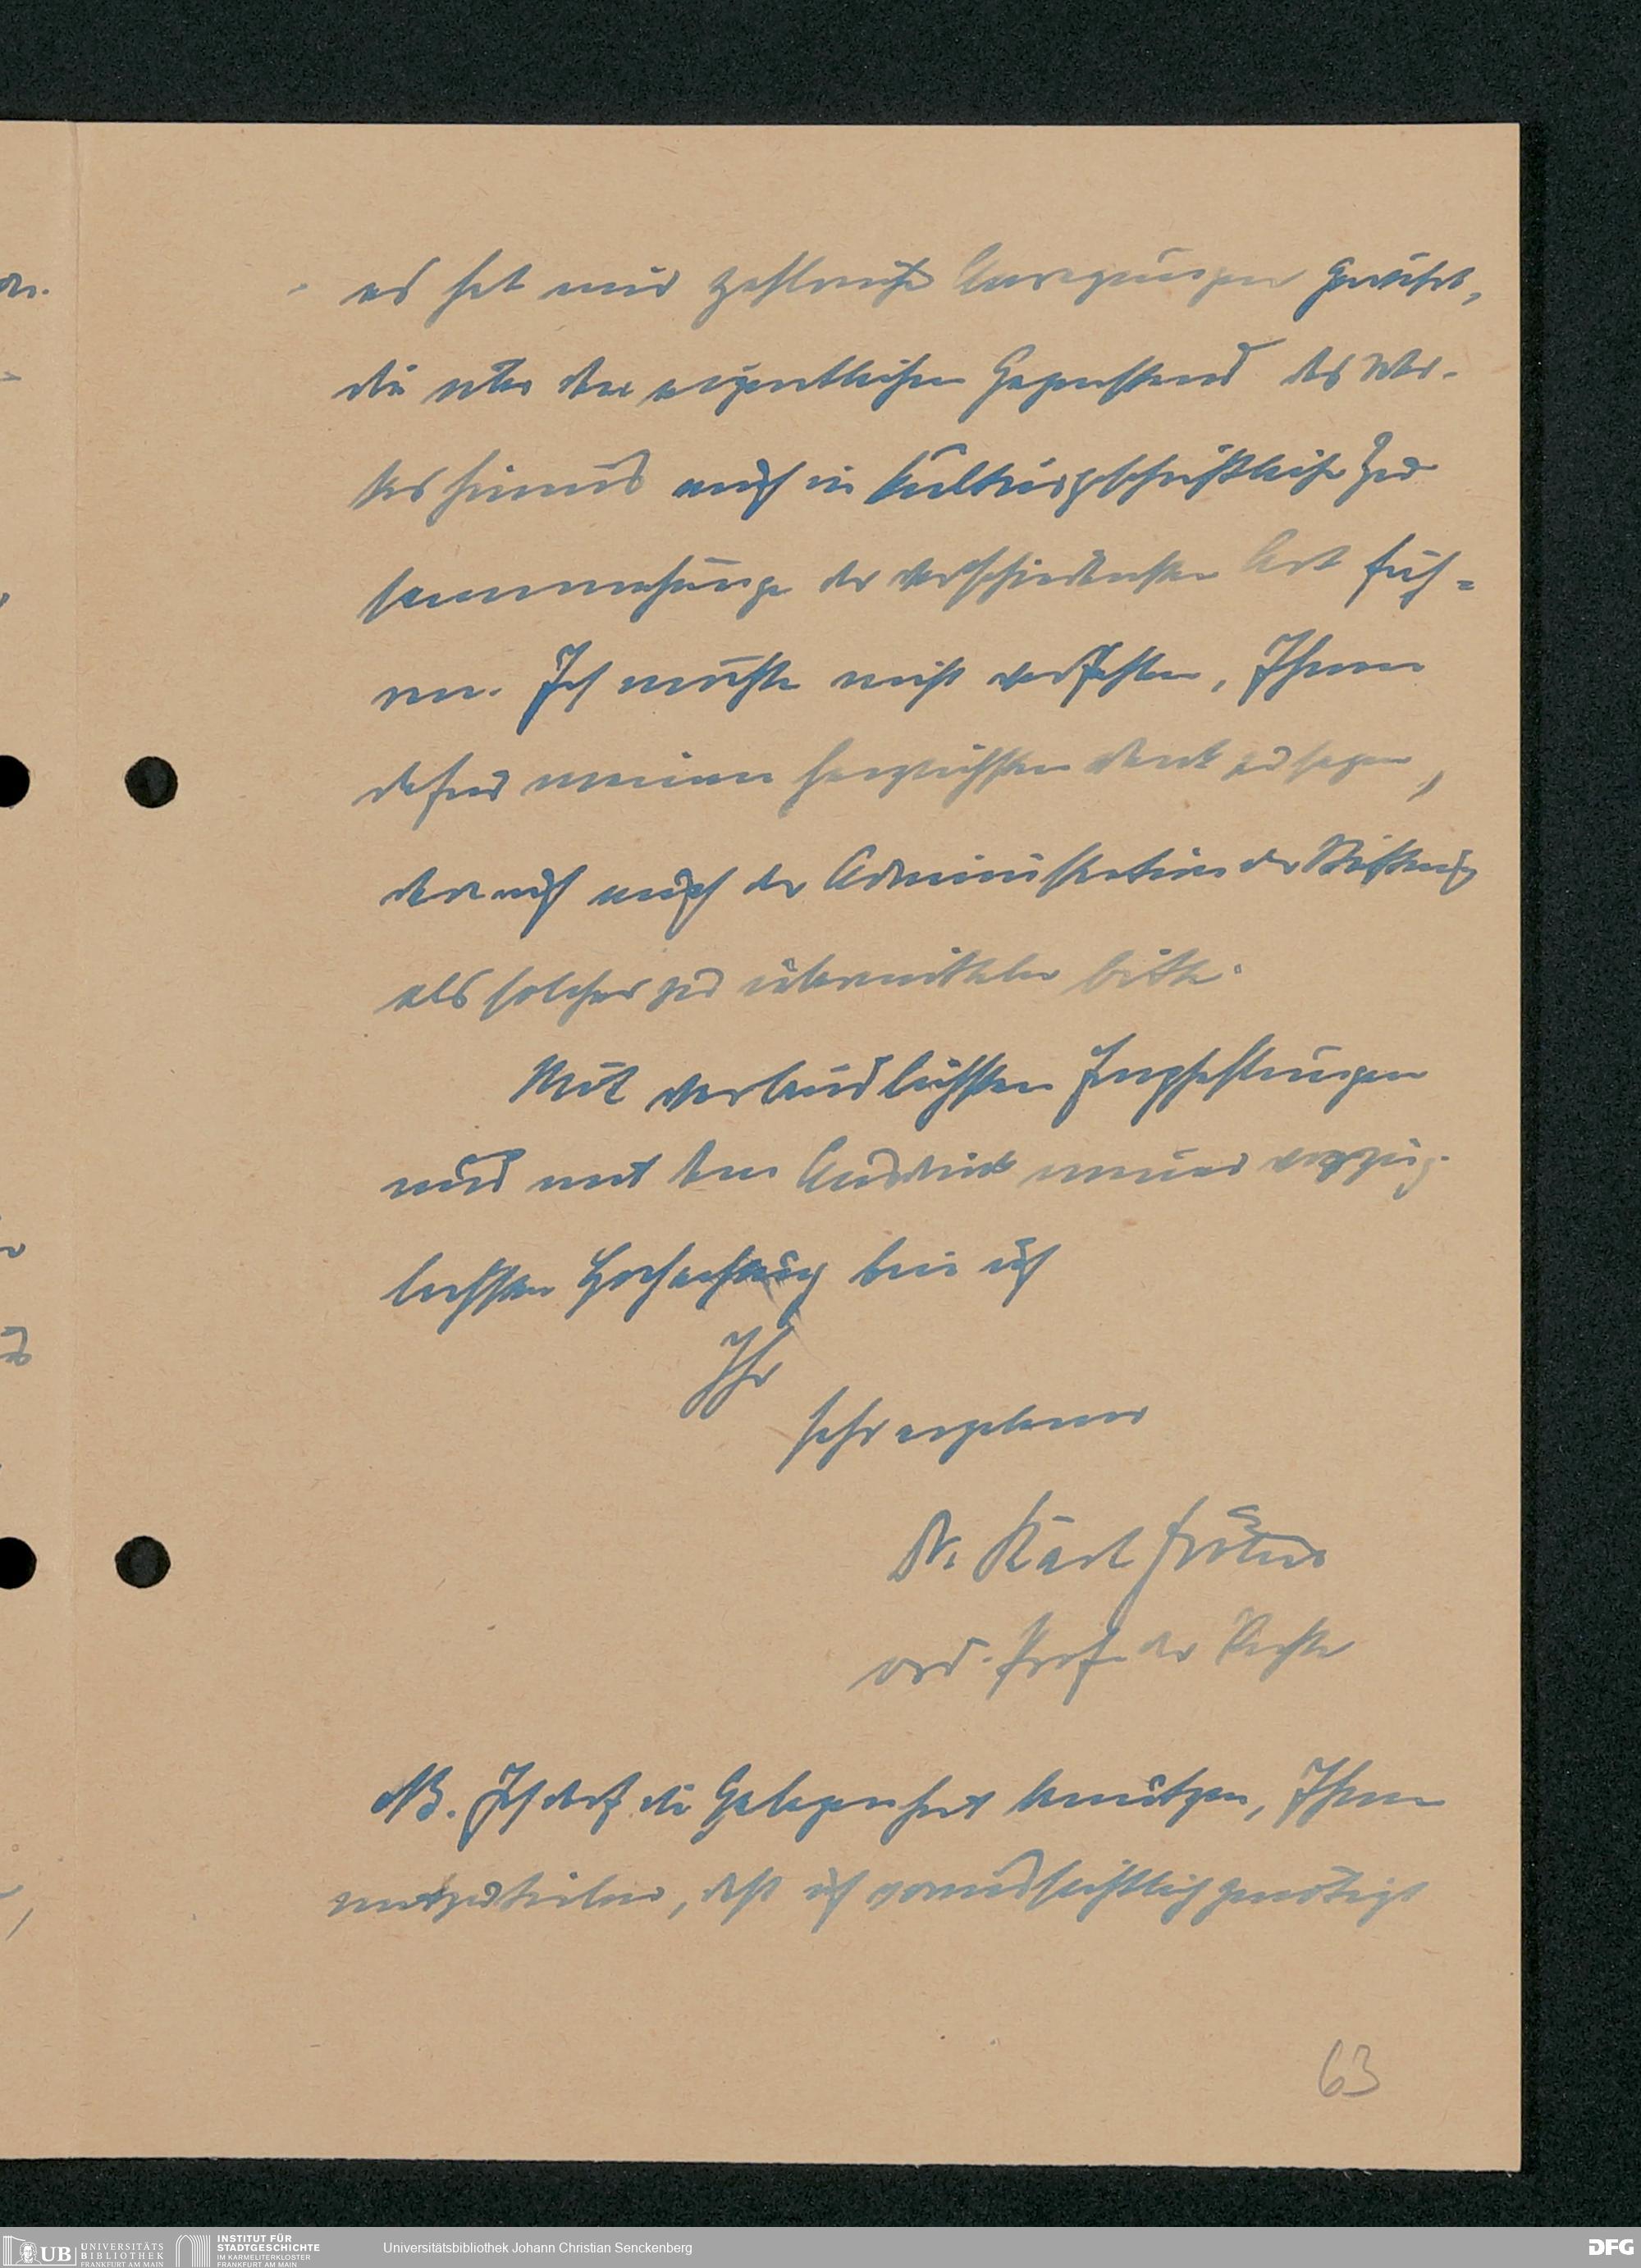 es hat mir zahlreiche Anregungen gewährt,
die über den eigentlichen Gegenstand des Wer-
kes hinaus auch in kulturgeschichtliche Zu-
sammenhänge der verschiedensten Art füh-
ren. Ich möchte nicht verfehlen, Ihnen
dafür meinen herzlichsten Dank zu sagen,
den ich auch der Administration der Stiftung
als solcher zu übermitteln bitte.
Mit verbindlichsten Empfehlungen
und mit dem Ausdruck meiner vorzüg-
lichsten Hochachtung bin ich
Ihr
sehr ergebener
Dr. Karl Frölich
ord. Prof. der Rechte
NB. Ich darf die Gelegenheit benützen, Ihnen
mitzuteilen, daß ich genötigt
63
UB UNIVERSITÄTS
BIBLIOTHEK
FRANKFURT AM MAIN
INSTITUT FÜR
STADTGESCHICHTE
IM KARMELITERKLOSTER
FRANKFURT AM MAIN
Universitätsbibliothek Johann Christian Senckenberg
DFG